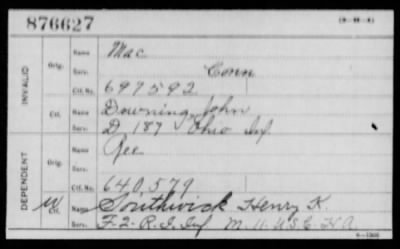 876627
INVALID
Orig. Name Mac
Serv. Conn
Ctf. No. 697592
Ctf. Name Downing, John
Serv. D, 187 Ohio Inf
DEPENDENT
Orig. Name Gee
Serv.
Ctf. No. 640,579
W Ctf. Name Southwick Henry K
Serv. F-2- R.I. Inf M. U.S.C. H.A